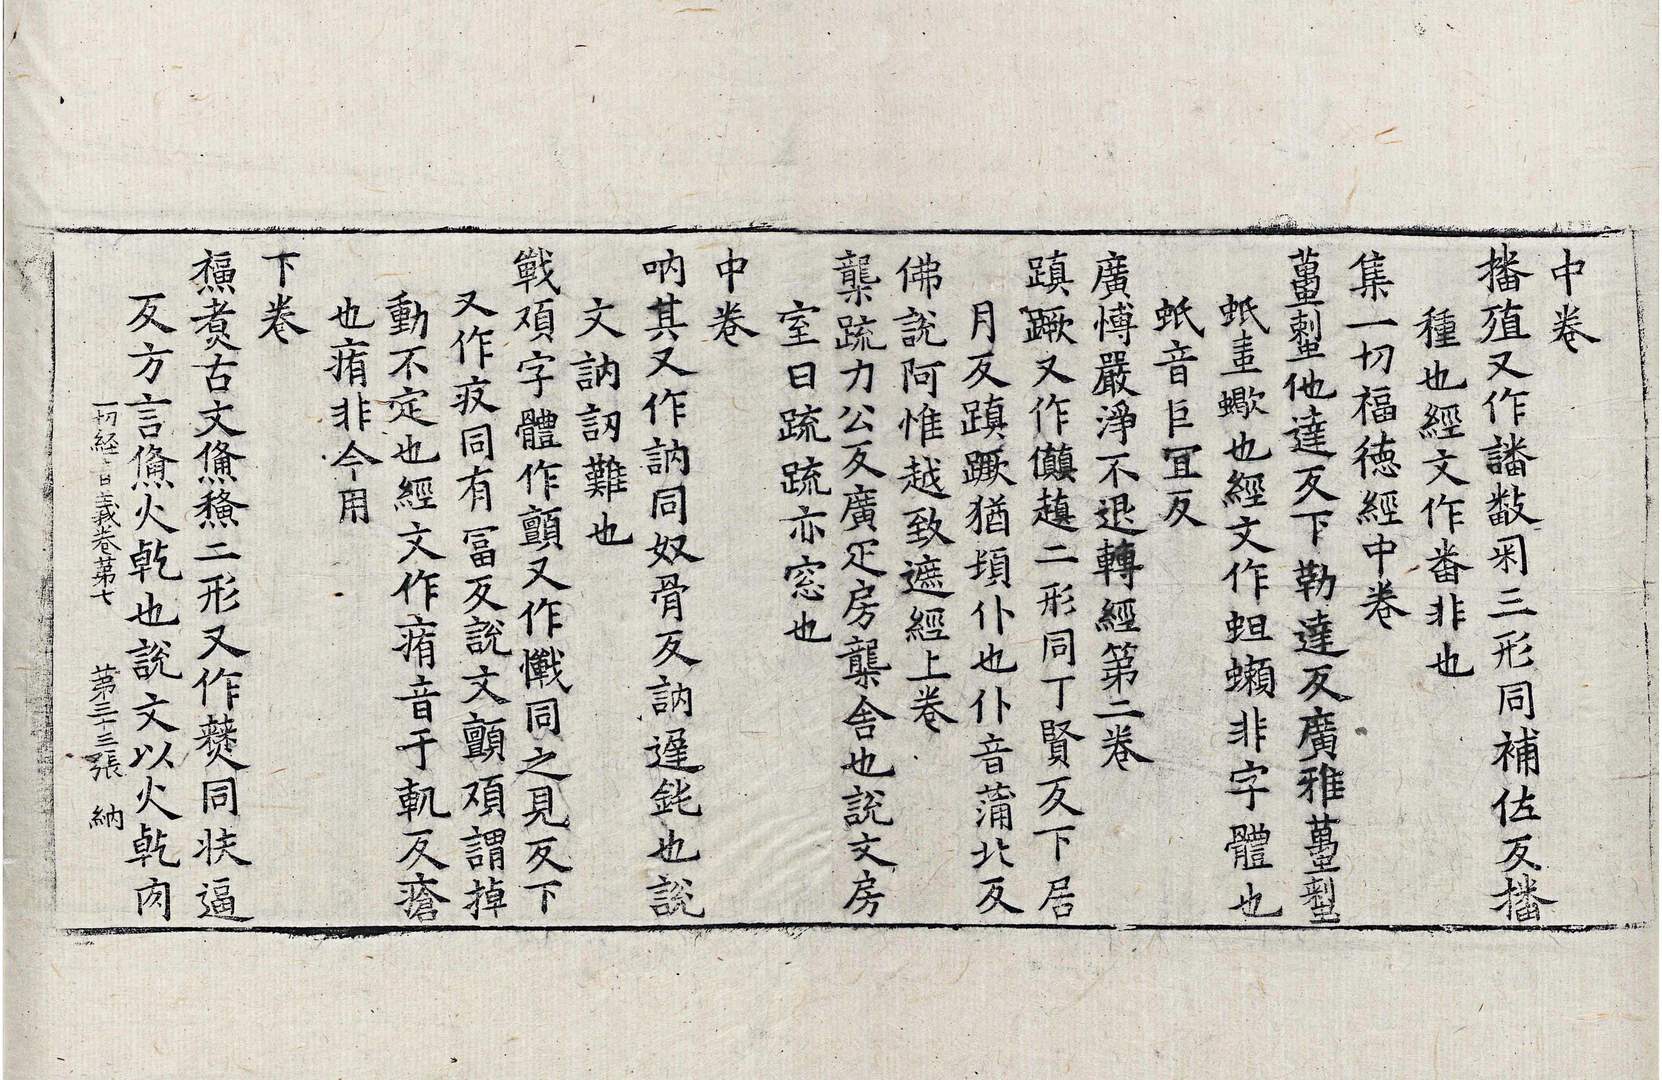 中卷
播殖又作譒敽㕛三形同補佐反播
種也經文作番非也
集一切福徳經中卷
蠆𧍒他達反下勒達反廣雅蠆𧍒
蚔畫蠍也經文作蛆蠏非字體也
蚔音巨宜反
廣博嚴淨不退轉經第二卷
蹎蹶又作傎䞪二形同丁賢反下居
月反蹎蹶猶頓仆也仆音蒲北反
佛說阿惟越致遮經上卷
龒䟽力公反廣疋房龒舍也說文房
室曰䟽䟽亦窓也
中卷
吶其又作訥同奴骨反訥遲鈍也說
文訥訒難也
戰頄字體作顫又作懺同之見反下
又作疫同有冨反說文顫頄謂掉
動不定也經文作痏音于軌反瘡
也痏非今用
下卷
㷶煑古文𤋎𪹚二形又作㷶同扶逼
反方言𤋎火乾也說文以火乾肉
一切経音義卷第七 第三十三張 納